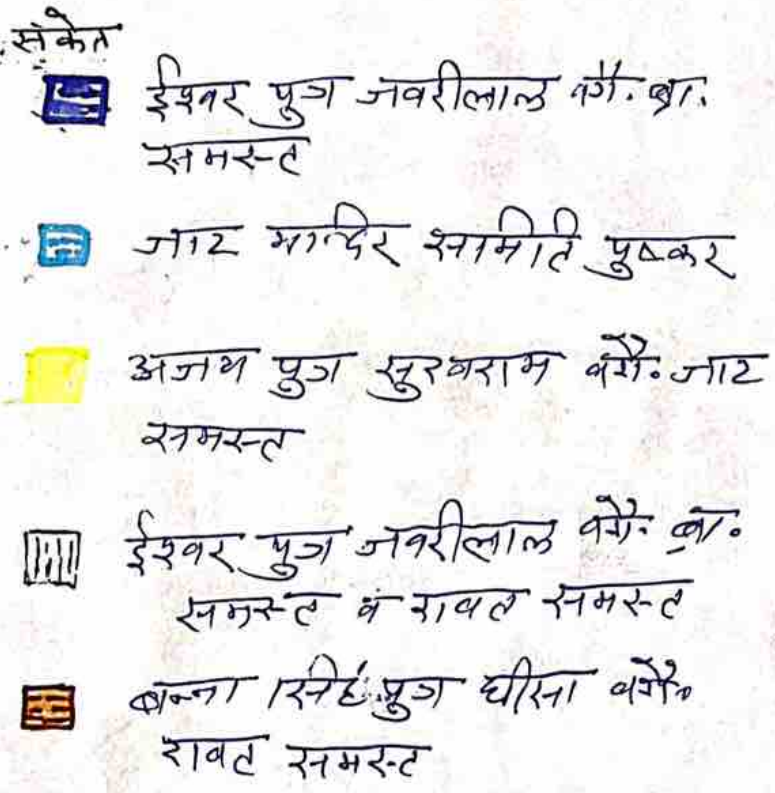 संकेत
ईश्वर पुत्र जवरीलाल वगै. ब्रा.
समस्त
जाट मन्दिर समिति पुष्कर
अजय पुत्र सुखराम वगै. जाट
समस्त
ईश्वर पुत्र जवरीलाल वगै. ब्रा.
समस्त व रावत समस्त
बन्ना सिंह पुत्र घीसा वगै.
रावत समस्त